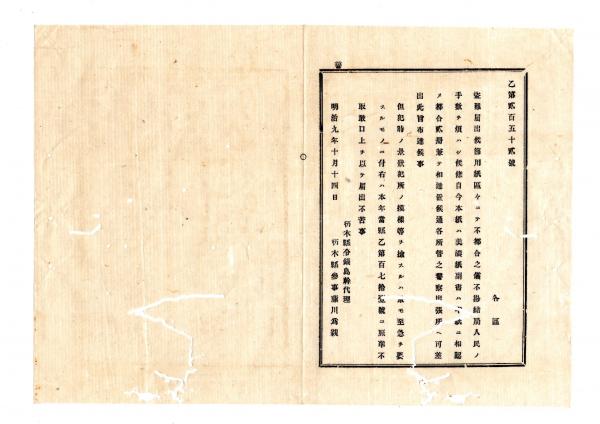 警
乙第貳百五十貳號
各區
盗難届出候節用紙區々ニテ不都合之儀不尠結局人民ノ
手數ヲ煩ハシ候條自今本紙ハ美濃紙副書ハ半紙ニ相認
メ都合貳册筆テ相達置候通各所管之警察出張所ヘ可差
出此旨布達候事
但犯時ノ景狀犯所ノ摸樣等ヲ撿スルハ最モ至急ヲ要
スルモノニ付右ハ本年當縣乙第百七拾壹號ニ照準不
取敢口上ヲ以テ届出不苦事
明治九年十月十四日
栃木縣令鍋島幹代理
栃木縣參事藤川爲親